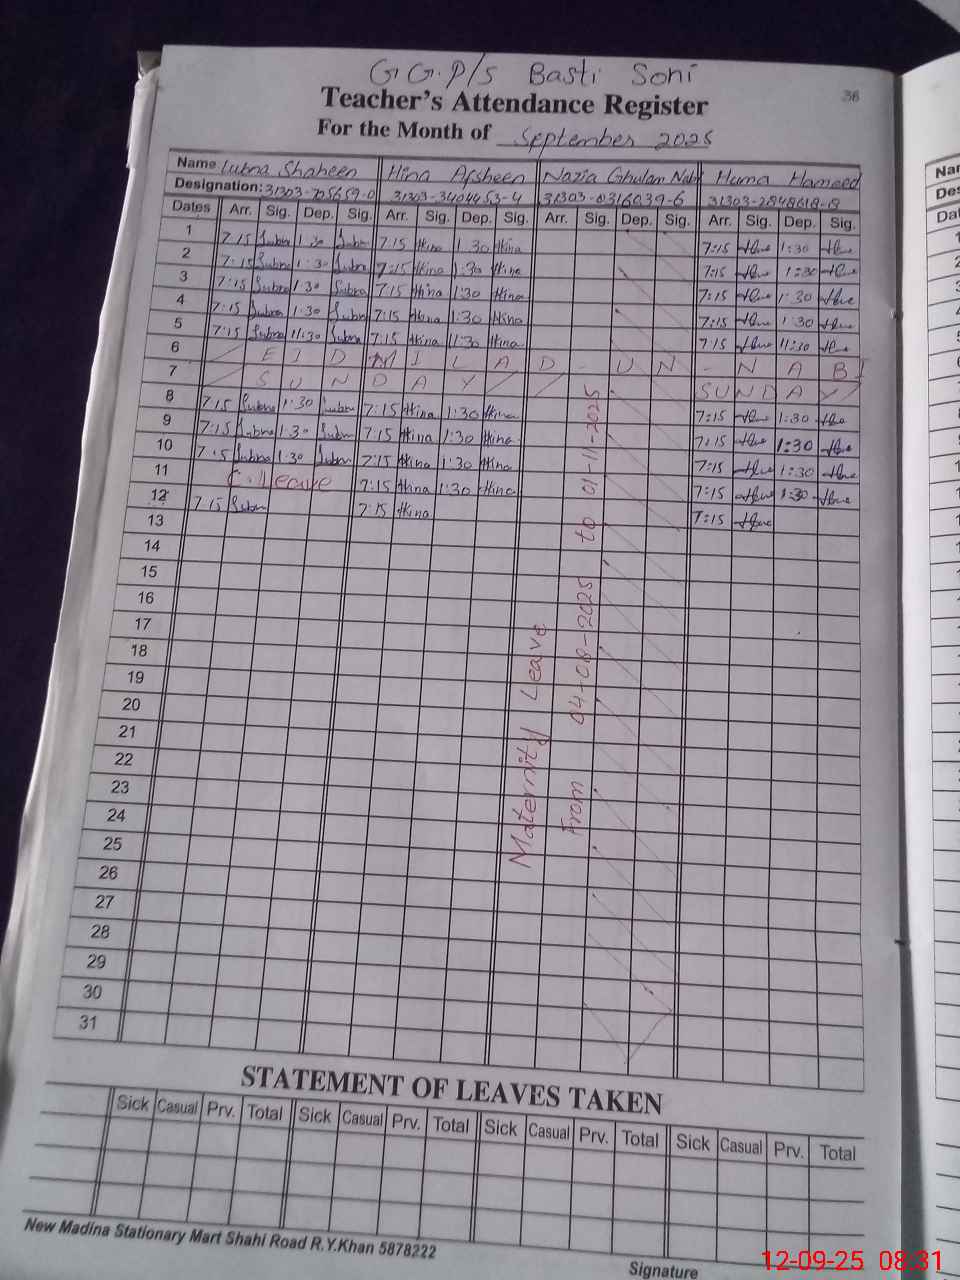 G G.P/S Basti Soni
36
Teacher's Attendance Register
For the Month of September 2025
Name Lubna Shaheen Hina Afsheen Nazia Ghulam Nabi Huma Hameed
Designation: 31303-705659-0 31303-3404653-4 31303-0316039-6 31303-2848618-8
Dates Arr. Sig. Dep. Sig. Arr. Sig. Dep. Sig. Arr. Sig. Dep. Sig. Arr. Sig. Dep. Sig.
1 7:15 Lubna 1:30 Lubna 7:15 Hina 1:30 Hina 7:15 1:30
2 7:15 Lubna 1:30 Lubna 7:15 Hina 1:30 Hina 7:15 1:30
3 7:15 Lubna 1:30 Lubna 7:15 Hina 1:30 Hina 7:15 1:30
4 7:15 Lubna 1:30 Lubna 7:15 Hina 1:30 Hina 7:15 1:30
5 7:15 Lubna 11:30 Lubna 7:15 Hina 11:30 Hina 7:15 11:30
6 EID MILAD-UN-NABI
7 SUNDAY SUNDAY
8 7:15 Lubna 1:30 Lubna 7:15 Hina 1:30 Hina 7:15 1:30
9 7:15 Lubna 1:30 Lubna 7:15 Hina 1:30 Hina 7:15 1:30
10 7:15 Lubna 1:30 Lubna 7:15 Hina 1:30 Hina 7:15 1:30
11 C.Leave 7:15 Hina 1:30 Hina 7:15 1:30
12 7:15 Lubna 7:15 Hina 7:15
13
14
15
16
17
18
19
20
21
22
23
24
25
26
27
28
29
30
31
Maternity Leave
From 04-08-2025 to 01-11-2025
STATEMENT OF LEAVES TAKEN
Sick Casual Prv. Total Sick Casual Prv. Total Sick Casual Prv. Total Sick Casual Prv. Total
New Madina Stationary Mart Shahi Road R.Y.Khan 5878222
Signature
12-09-25 08:31